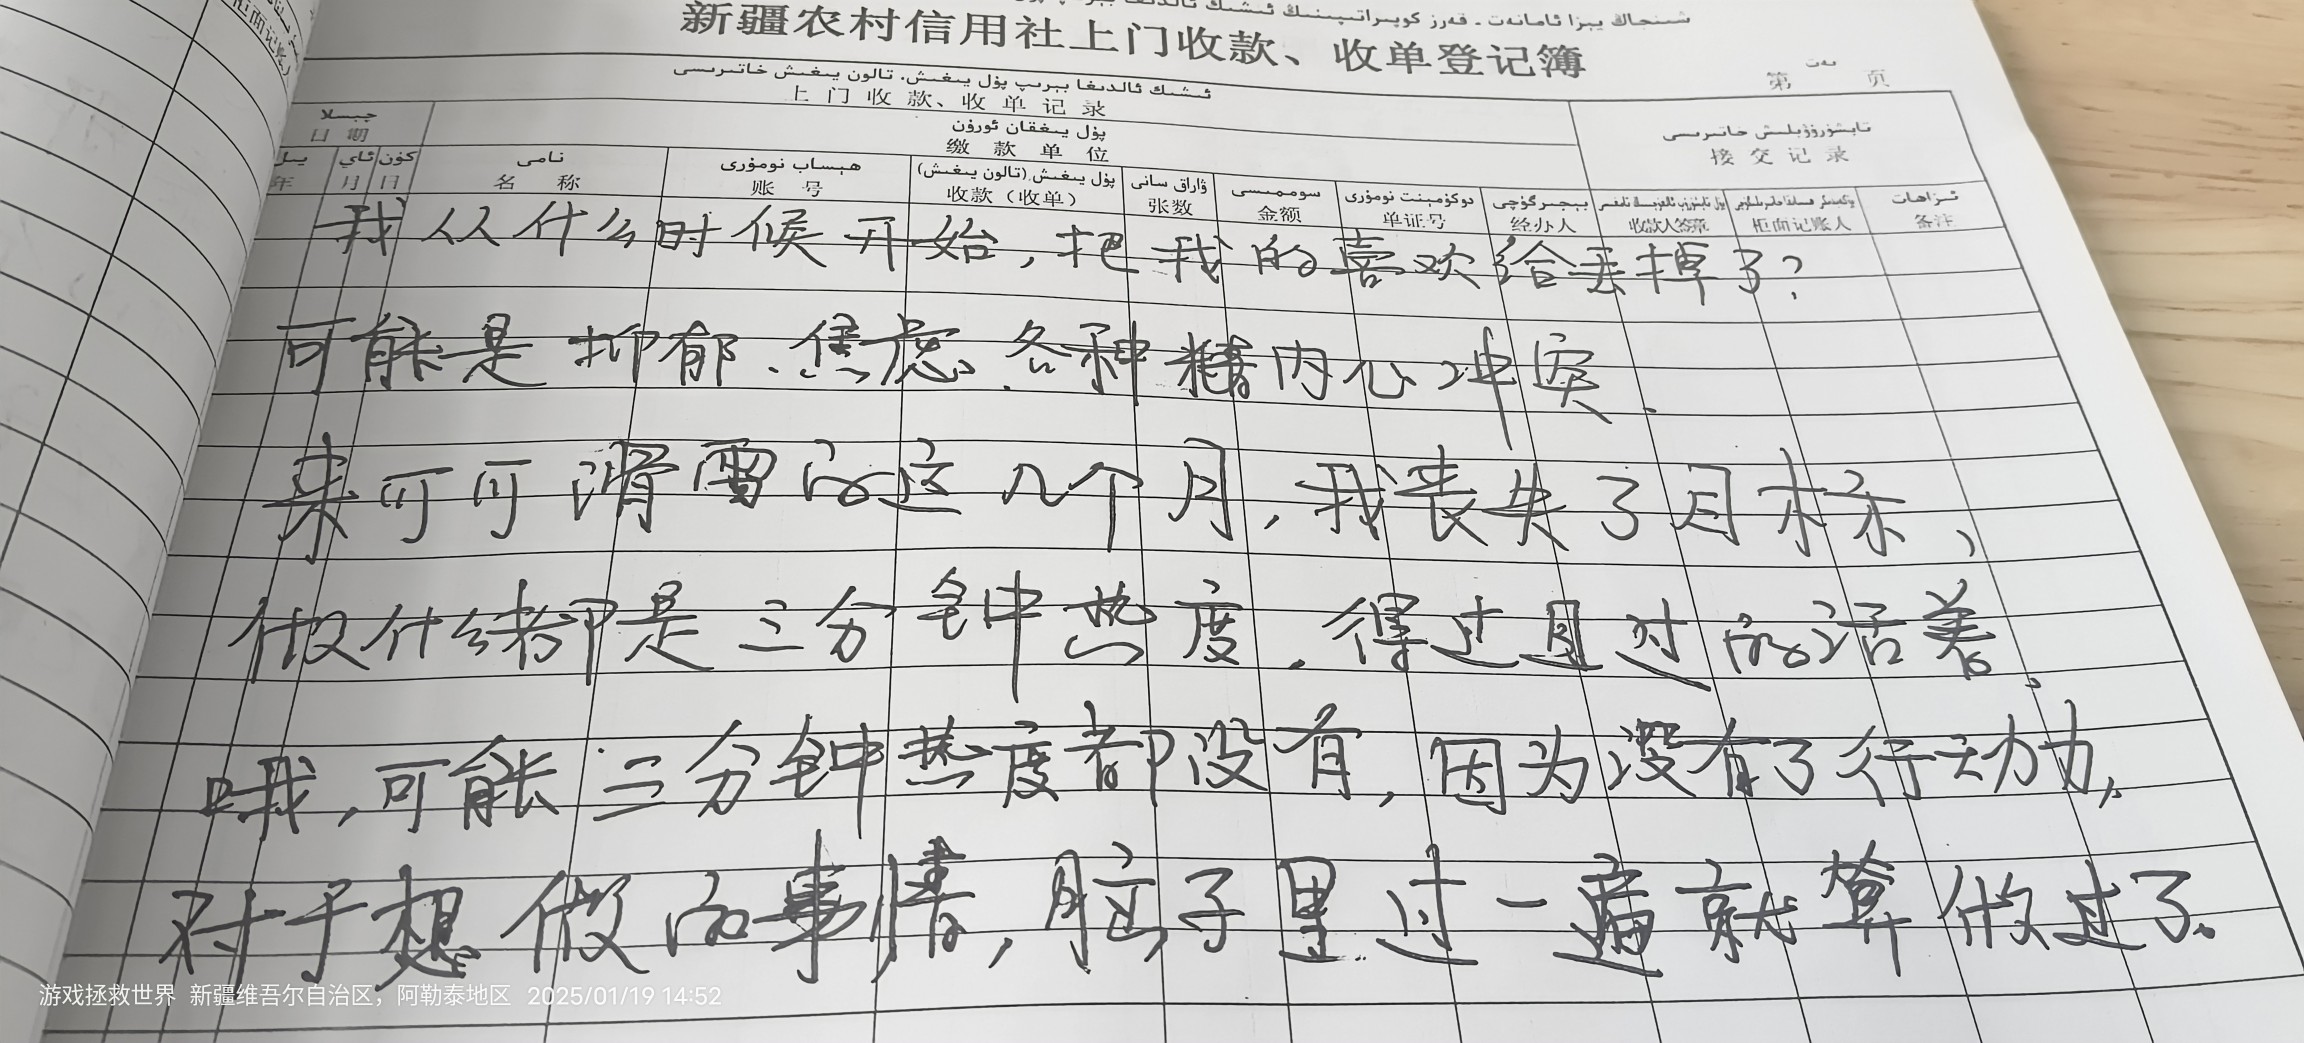 新疆农村信用社上门收款、收单登记簿
第 页
ئىشىك ئالدىغا بېرىپ پۇل يىغىش، تالون يىغىش خاتىرىسى
上门收款、收单记录
تاپشۇرۇۋېلىش خاتىرىسى
接交记录
چېسلا
日期
پۇل يىغقان ئورۇن
缴款单位
يىل ئاي كۈن نامى ھېساب نومۇرى پۇل يىغىش (تالون يىغىش) ۋاراق سانى سوممىسى دوكۇمېنت نومۇرى بېجىرگۈچى ئىزاھات
年 月 日 名称 账号 收款（收单） 张数 金额 单证号 经办人 收款人签章 柜面记账人 备注
我从什么时候开始，把我的喜欢给丢掉了？
可能是抑郁、焦虑、各种精内心冲突、
来可可滑雪的这几个月，我丧失了目标，
做什么都是三分钟热度，得过且过的活着，
哦，可能三分钟热度都没有，因为没有了行动力，
对于想做的事情，脑子里过一遍就算做过了。
柜面记
游戏拯救世界 新疆维吾尔自治区，阿勒泰地区 2025/01/19 14:52